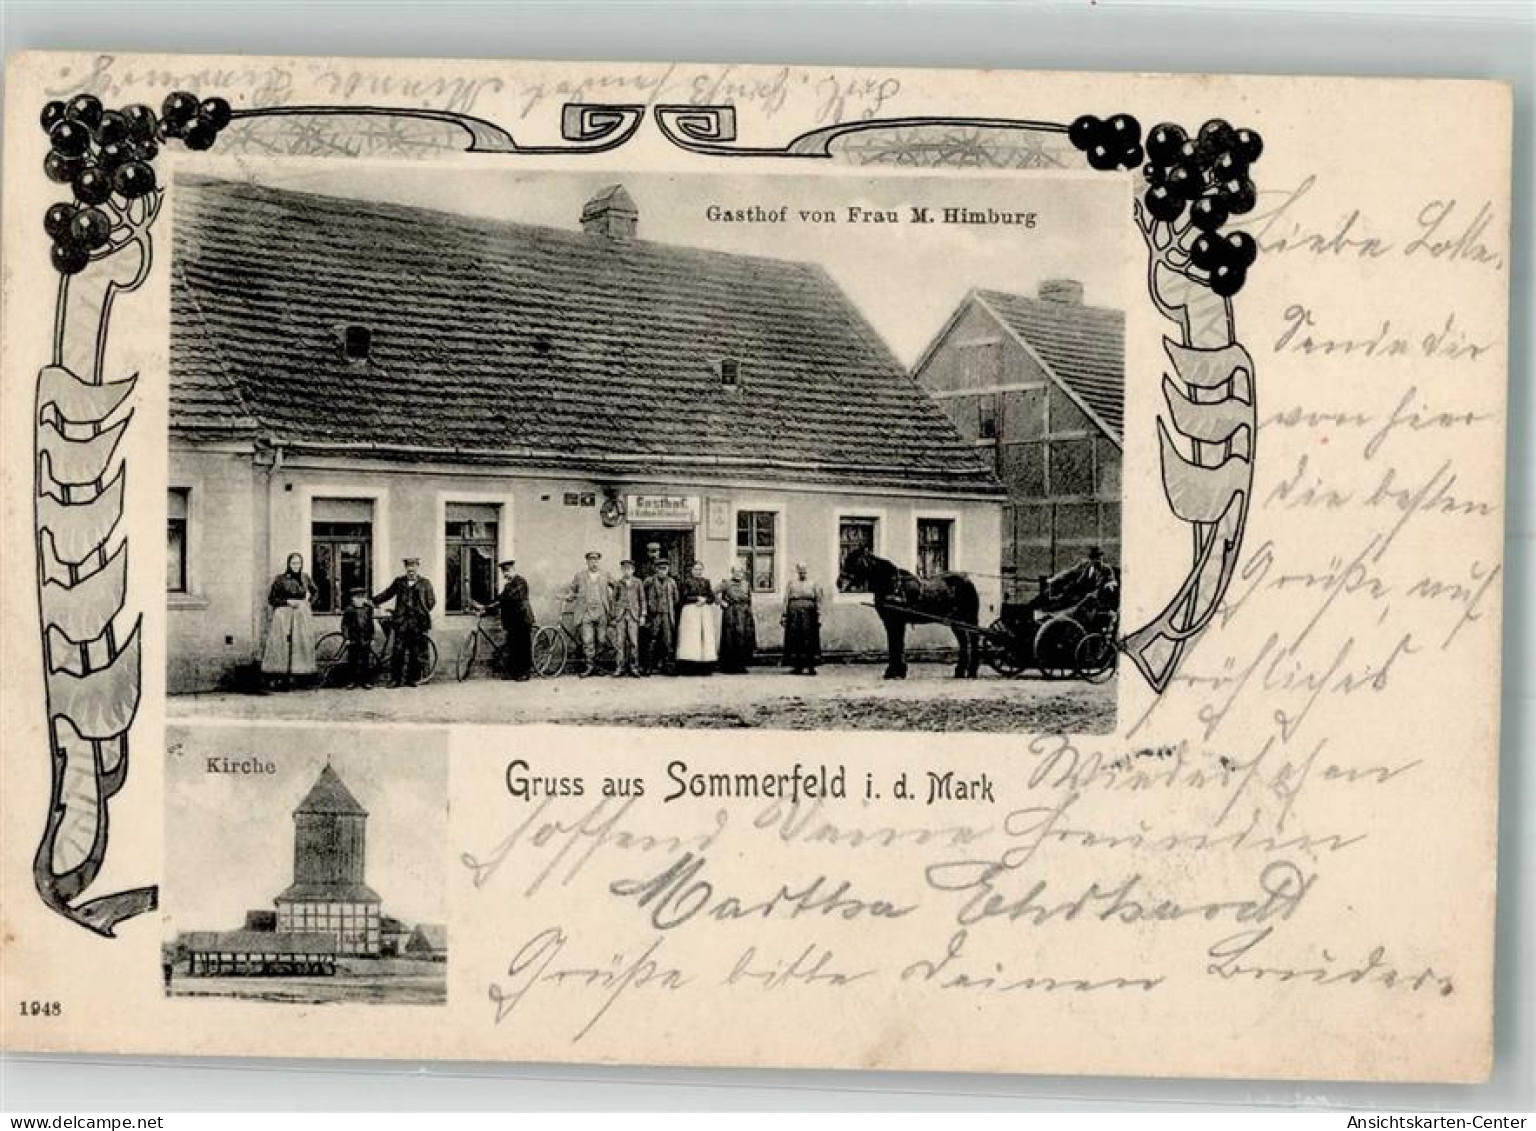 Gasthof von Frau M. Himburg
Gasthof
Kirche
Gruss aus Sommerfeld i. d. Mark
1948
Liebe Lotte.
Sende dir
von hier
die besten
Grüße, auf
fröhliches
Wiedersehen
hoffend Deine Freundin
Martha Ehrhardt
Grüße bitte deinen Bruder.
Ansichtskarten-Center